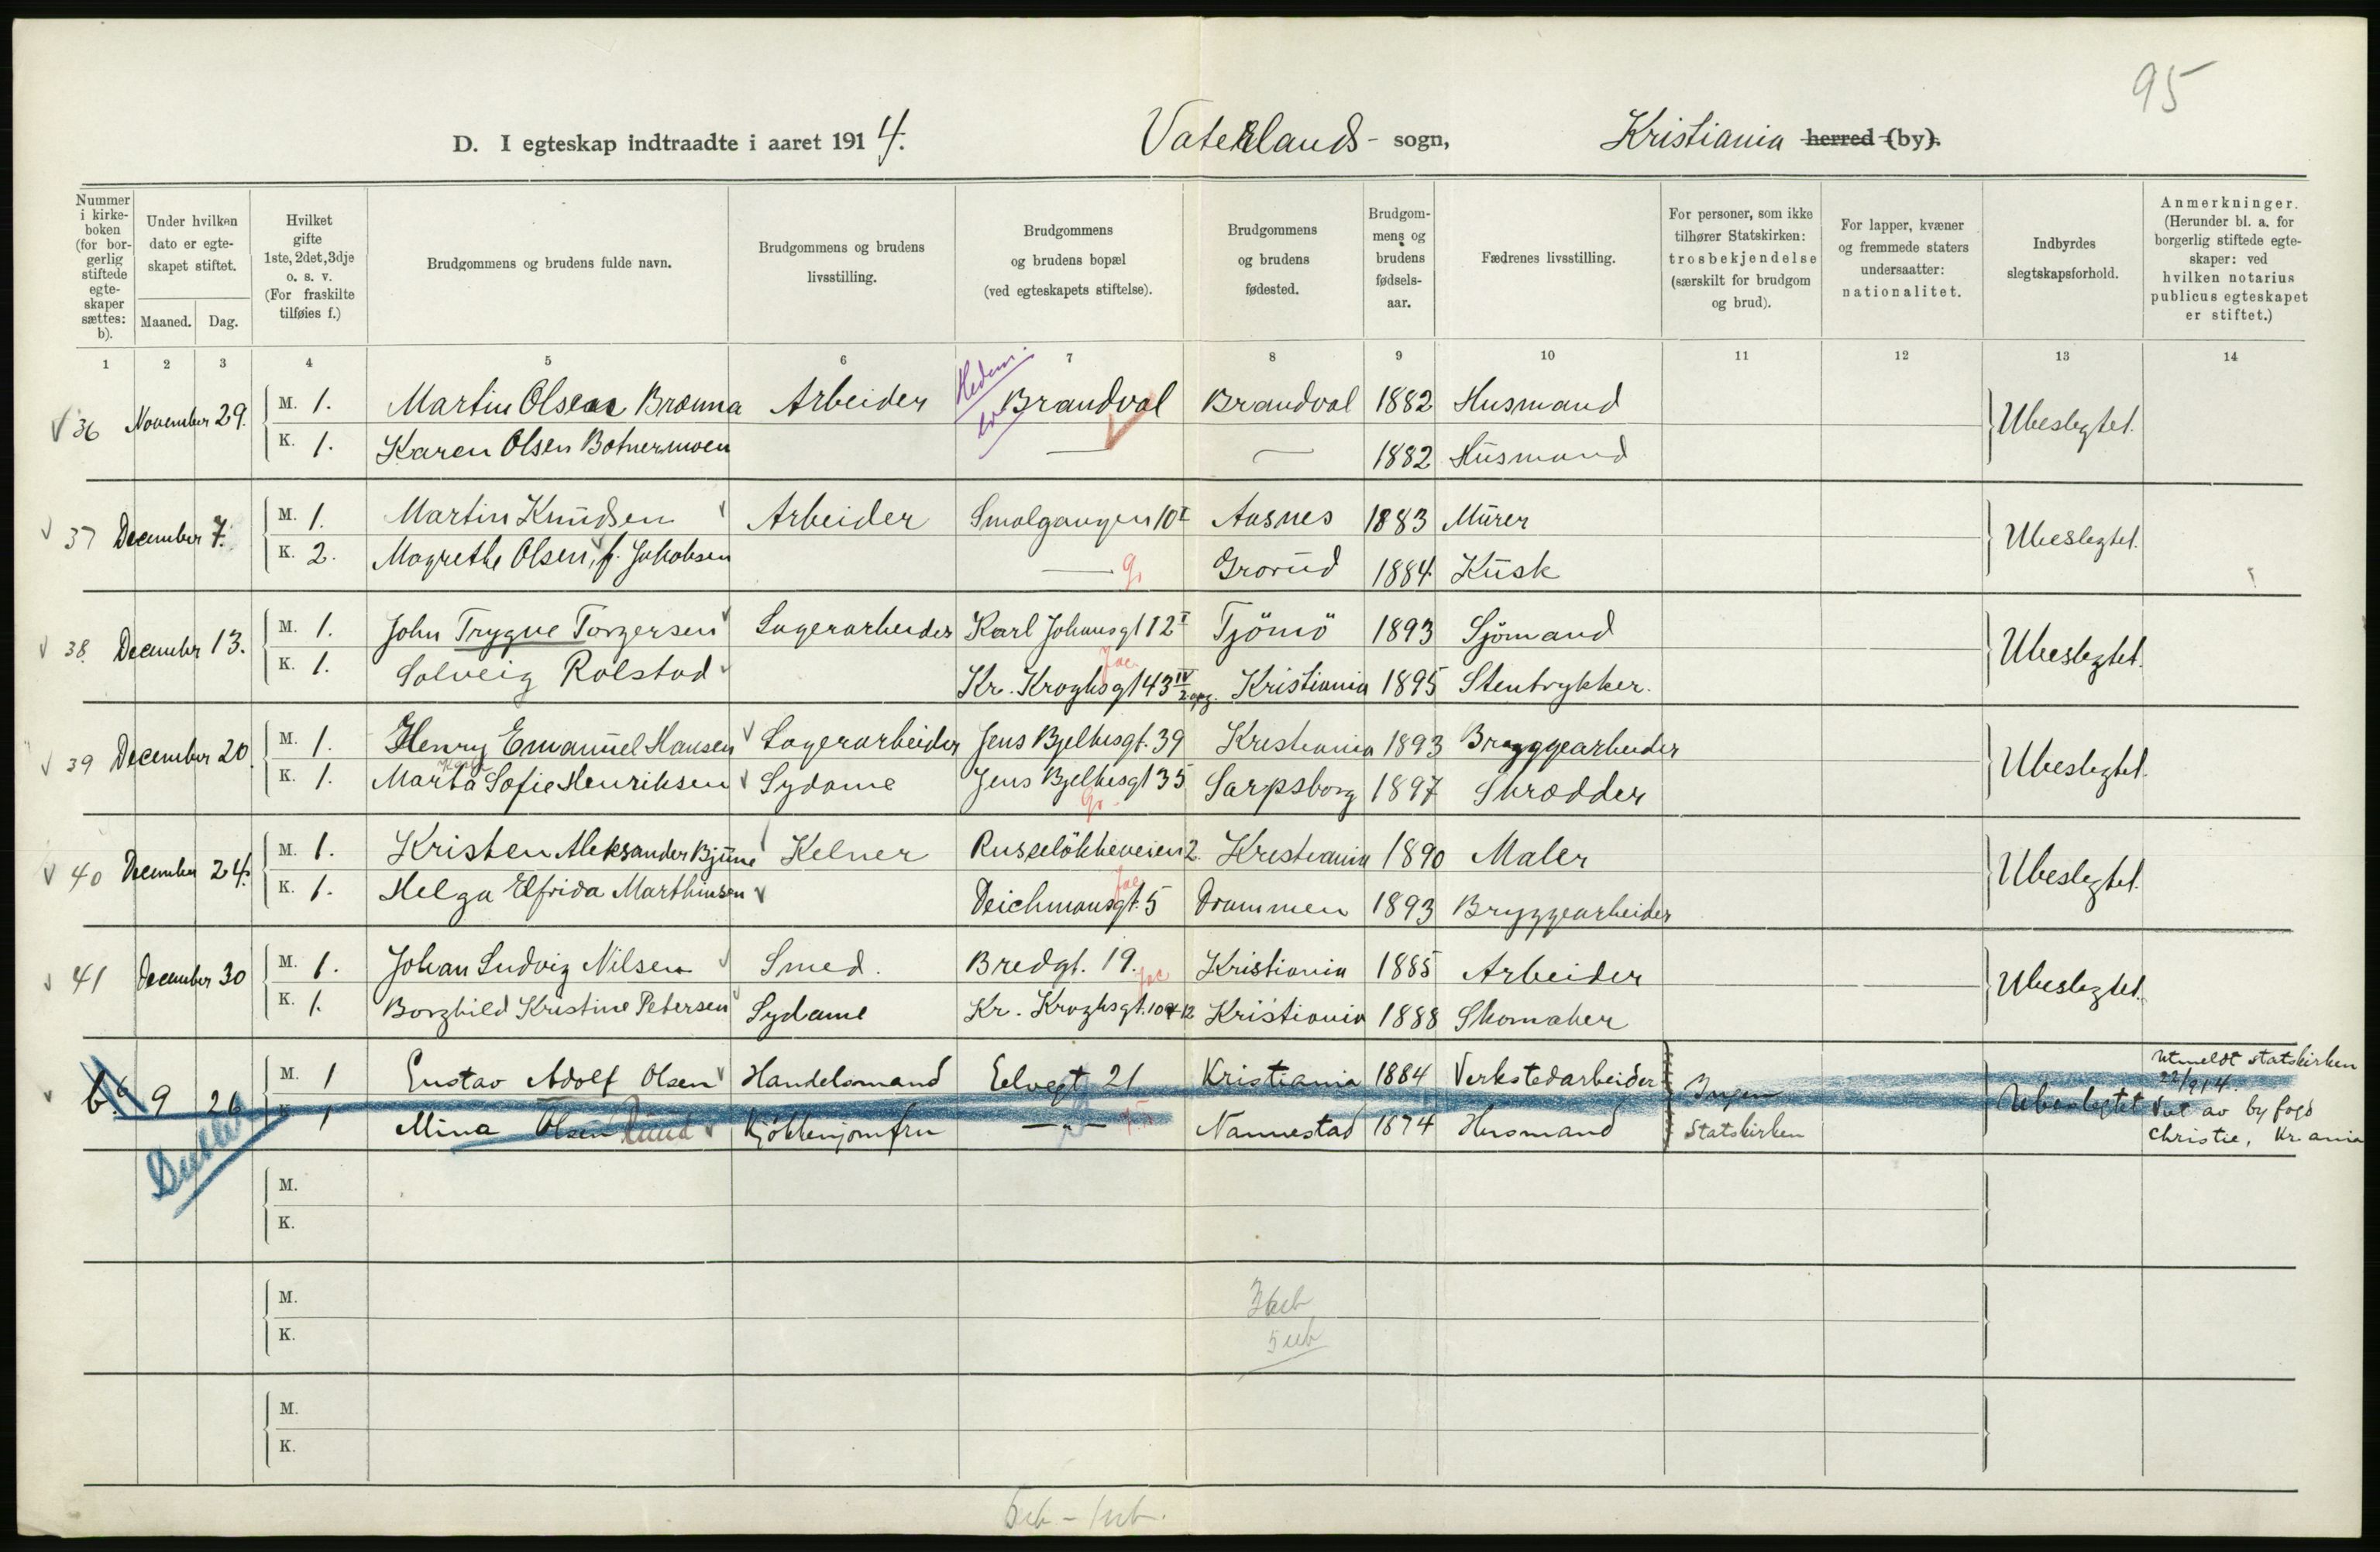 95
D. I egteskap indtraadte i aaret 1914. Vaterlands- sogn, Kristiania herred (by).
Nummer i kirke-boken (for bor-gerlig stiftede egte-skaper sættes: b).
Under hvilken dato er egte-skapet stiftet.
Maaned. Dag.
Hvilket gifte 1ste, 2det, 3dje o. s. v. (For fraskilte tilføies f.)
Brudgommens og brudens fulde navn.
Brudgommens og brudens livsstilling.
Brudgommens og brudens bopæl (ved egteskapets stiftelse).
Brudgommens og brudens fødested.
Brudgom-mens og brudens fødsels-aar.
Fædrenes livsstilling.
For personer, som ikke tilhører Statskirken: trosbekjendelse (særskilt for brudgom og brud).
For lapper, kvæner og fremmede staters undersaatter: nationalitet.
Indbyrdes slegtskapsforhold.
Anmerkninger. (Herunder bl. a. for borgerlig stiftede egte-skaper: ved hvilken notarius publicus egteskapet er stiftet.)
1 2 3 4 5 6 7 8 9 10 11 12 13 14
Hedm.
36 November 29. M. 1. Martin Olsen Brænna Arbeider Brandval Brandval 1882 Husmand Ubeslegtet.
K. 1. Karen Olsen Botnermoen — — 1882 Husmand
37 December 7. M. 1. Martin Knudsen Arbeider Smalgangen 10 I Aasnes 1883 Murer Ubeslegtet.
K. 2. Magrethe Olsen, f. Jakobsen — G. Grorud 1884 Kusk
38. December 13. M. 1. John Trygve Torgersen Lagerarbeider Karl Johansgt 12 I Tjömö 1893 Sjömand Ubeslegtet.
Jac.
K. 1. Solveig Rolstad Kr. Kroghsgt 43 IV 2 opg. Kristiania 1895 Stentrykker.
39 December 20. M. 1. Henry Emanuel Hansen Lagerarbeider Jens Bjelkesgt. 39 Kristiania 1893 Bryggearbeider Ubeslegtet.
K. 1. Marta Sofie Henriksen Sydame Jens Bjelkesgt 35 Sarpsborg 1897 Skrædder
40 December 24. M. 1. Kristen Aleksander Bjune Kelner Ruseløkkeveien 2. Kristiania 1890 Maler Ubeslegtet.
Jac.
K. 1. Helga Elfrida Marthinsen Deichmansgt. 5 Drammen 1893 Bryggearbeider
41 December 30 M. 1. Johan Ludvig Nilsen Smed. Bredgt. 19. Kristiania 1885 Arbeider Ubeslegtet.
Jac
K. 1. Borghild Kristine Petersen Sydame Kr. Kroghsgt. 10 + 12 Kristiania 1888 Skomaker
b. 9 26 M. 1 Gustav Adolf Olsen Handelsmand Elvegt 21 Kristiania 1884 Verkstedarbeider Ingen Ubeslegtet Utmeldt statskirken
22/9 14.
K. 1 Mina Olsen Ruud Kjökkenjomfru — „ — Nannestad 1874 Husmand Statskirken Viet av byfogd
Christie, Kr.ania
M.
K.
M.
K.
M.
K.